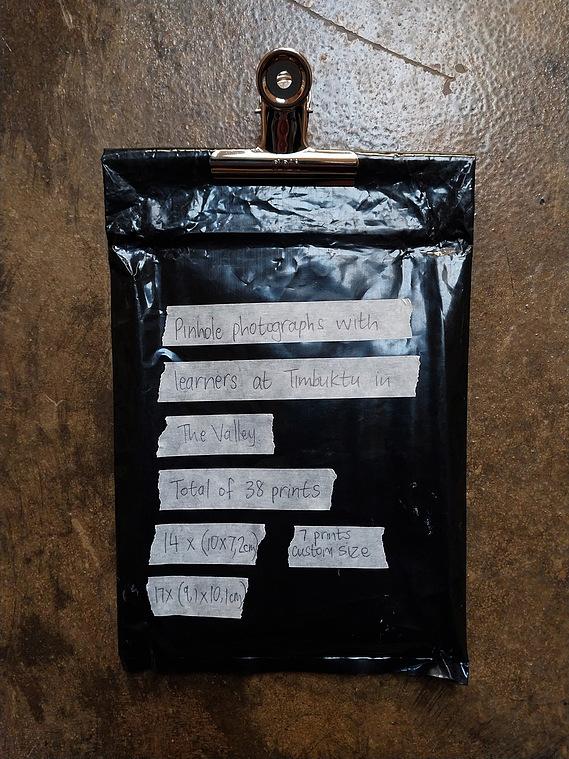 Pinhole photographs with
learners at Timbuktu in
The Valley
Total of 38 prints
14 x (10x7,2cm)
7 prints
custom size
17x (9,1x10,1cm)